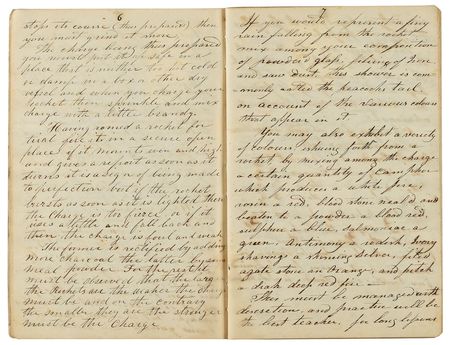 6
stops its course (thus prepared) then
you must grind it more.
The charge being thus prepared
you must put it up safe in a
place that is neither too hot cold
or damp in a box or other dry
vessel and when you charge your
rocket then sprinkle and mix
charge with a little brandy.
Having rammed a rocket for
trial fire it in a secure open
place if it mounts even and high
and gives a report as soon as it
turns it is a sign of being made
to perfection but if the rocket
bursts as soon as it is lighted then
the Charge is too fierce or if it
rises a little and falls back as
then the charge is foul and weak
The former is rectified by adding
more charcoal the latter by some
meal powder. For the rest it
must be observed that the larg
the Rockets are the weaker the charge
must be and on the contrary
the smaller they are the stronger
must be the Charge
7
If you would represent a fiery
rain falling from the rocket
mix among your composition
of powdered glass, filings of Iron
and saw dust, this shower is com-
monly called the peacocks tail
on account of the various colours
that appear in it
You may also exhibit a variety
of colours issuing forth from a
rocket by mixing among the charge
a certain quantity of camphor
which produces a white fire,
rosin a red, blood stone
beaten to a powder a blood red,
sulphur a blue, salmoniac a
green, Antimony a redish, Ivory
shavings a shining Silver, filed
agate stone an Orange, and pitch
a dark deep red fire —
This must be managed with
discretion, and practice will be
the best teacher, for long lessons